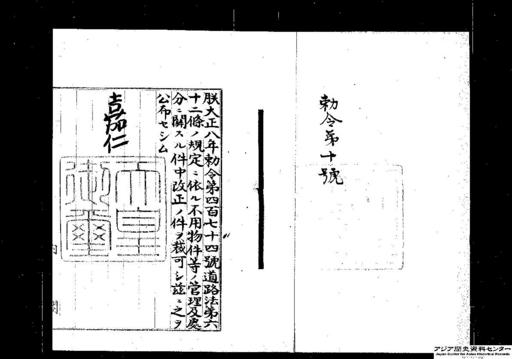 勅令第十號
朕大正八年勅令第四百七十四號道路法第六
十二條ノ規定ニ依ル不用物件等ノ管理及處
分ニ關スル件中改正ノ件ヲ裁可シ茲ニ之ヲ
公布セシム
嘉仁
天皇御璽
アジア歴史資料センター
Japan Center for Asian Historical Records